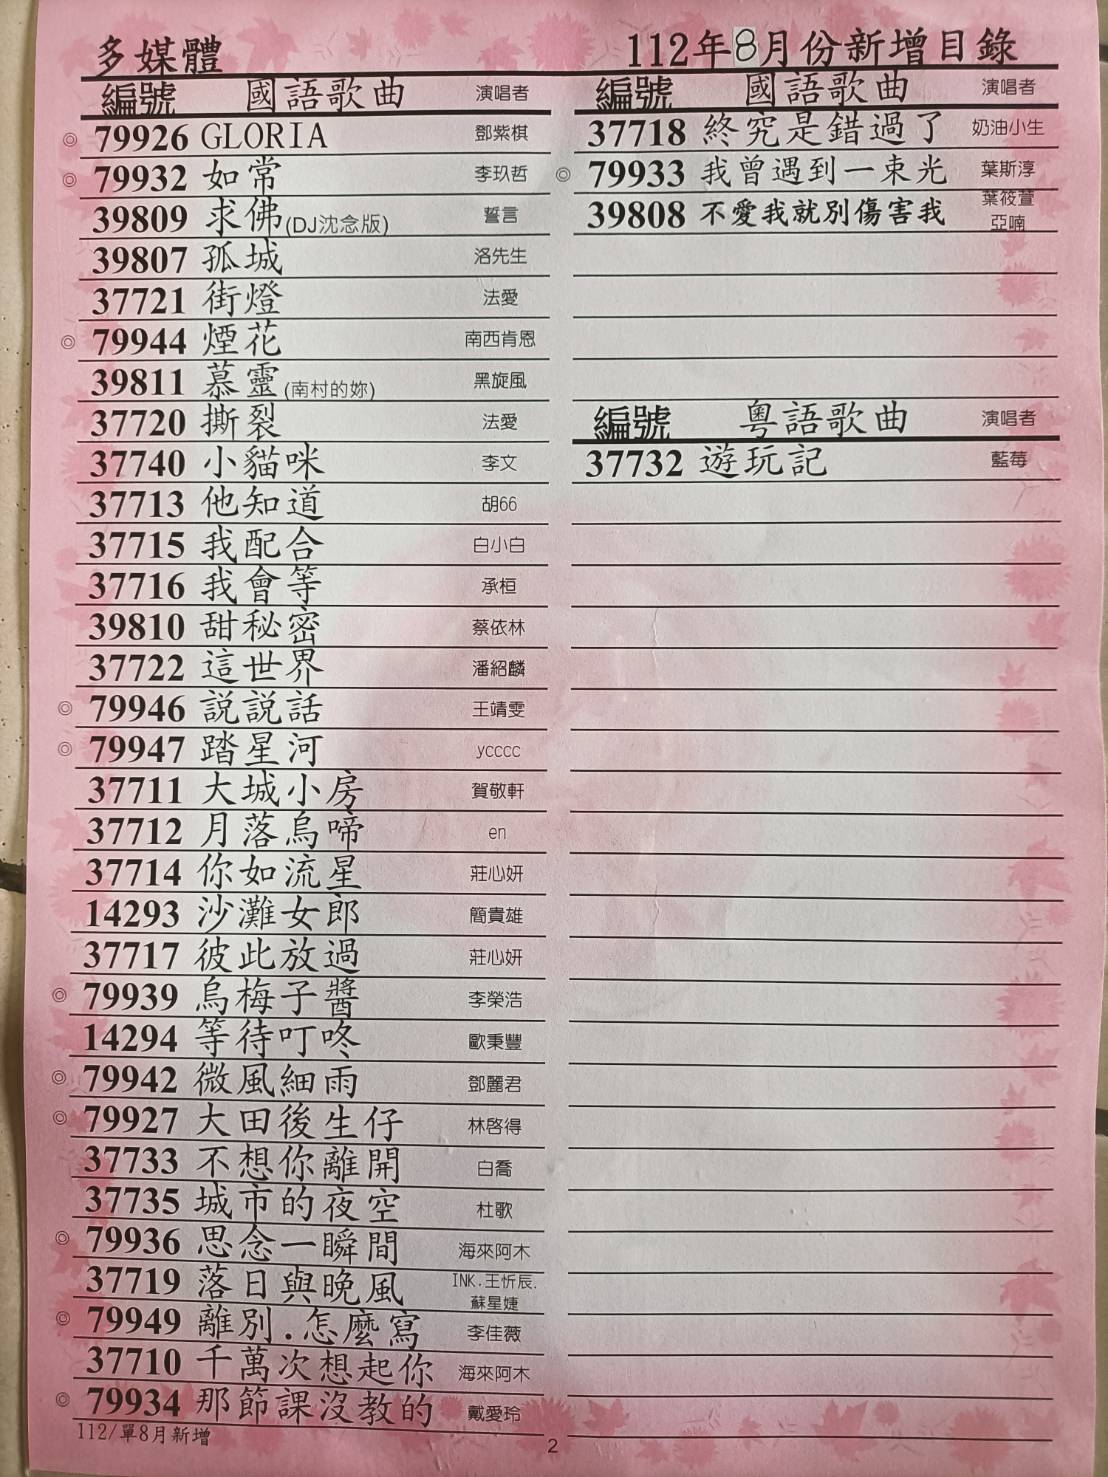 多媒體
112年8月份新增目錄
編號 國語歌曲 演唱者
◎ 79926 GLORIA 鄧紫棋
◎ 79932 如常 李玖哲
39809 求佛(DJ沈念版) 誓言
39807 孤城 洛先生
37721 街燈 法愛
◎ 79944 煙花 南西肯恩
39811 慕靈(南村的妳) 黑旋風
37720 撕裂 法愛
37740 小貓咪 李文
37713 他知道 胡66
37715 我配合 白小白
37716 我會等 承桓
39810 甜秘密 蔡依林
37722 這世界 潘紹麟
◎ 79946 説説話 王靖雯
◎ 79947 踏星河 ycccc
37711 大城小房 賀敬軒
37712 月落烏啼 en
37714 你如流星 莊心妍
14293 沙灘女郎 簡貴雄
37717 彼此放過 莊心妍
◎ 79939 烏梅子醬 李榮浩
14294 等待叮咚 歐秉豐
◎ 79942 微風細雨 鄧麗君
◎ 79927 大田後生仔 林啓得
37733 不想你離開 白喬
37735 城市的夜空 杜歌
◎ 79936 思念一瞬間 海來阿木
37719 落日與晚風 INK.王忻辰.
蘇星婕
◎ 79949 離別.怎麼寫 李佳薇
37710 千萬次想起你 海來阿木
◎ 79934 那節課沒教的 戴愛玲
112/單8月新增
編號 國語歌曲 演唱者
37718 終究是錯過了 奶油小生
◎ 79933 我曾遇到一束光 葉斯淳
39808 不愛我就別傷害我 葉筱萱
亞喃
編號 粵語歌曲 演唱者
37732 遊玩記 藍莓
2